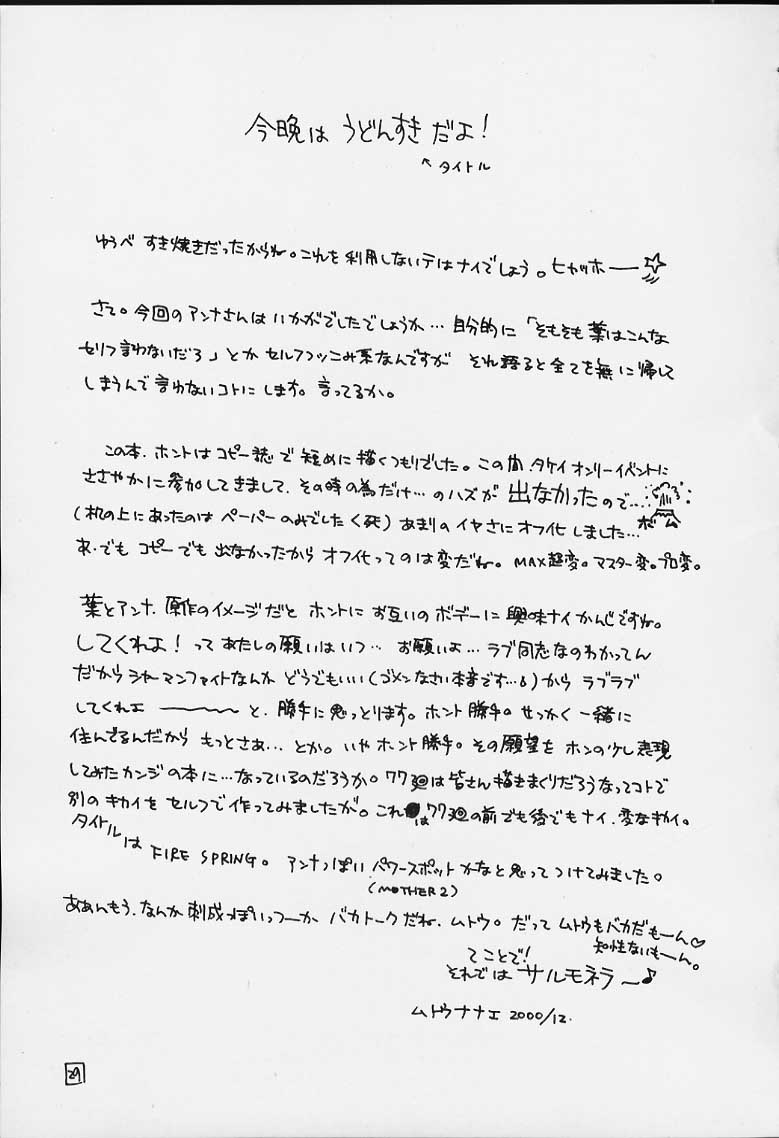 今晩は うどんすき だよ!
↖タイトル
ゆうべ すき焼きだったからね。これを利用しないテはナイでしょう。ヒャッホー──☆
さて。今回のアンナさんはいかがでしたでしょうか…自分的に「そもそも葉はこんな
セリフ言わないだろ」とか セルフツッこみ系なんですが それ語ると全てを無に帰して
しまうんで言わないコトにします。言ってるか。
この本、ホントはコピー誌で短めに描くつもりでした。この間、タケイオンリーイベントに
ささやかに参加してきまして、その時の為だけ…のハズが 出なかったので…
(机の上にあったのは ペーパーのみでした<死)あまりのイヤさにオフ化しました… ボム
あ、でも コピーでも 出なかったから オフ化ってのは変だね。MAX超変。マスター変。プロ変。
葉とアンナ、原作のイメージだと ホントに お互いの ボデーに 興味ナイかんじですね。
してくれよ!って あたしの願いはいつ… お願いよ…ラブ同志なのわかってん
だからシャーマンファイトなんか どうでもいい(ゴメンなさい本音です…)から ラブラブ
してくれよ ────〜 と、勝手に思っとります。ホント勝手。せっかく一緒に
住んでるんだから もっとさぁ… とか。いや ホント勝手。その願望を ホンの少し表現
してみたカンジの本に…なっているのだろうか。77廻は皆さん描きまくりだろうなってコトで
別のキカイを セルフで作ってみましたが。これは77廻の前でも後でもナイ、変なキカイ。
タイトルは FIRE SPRING。 アンナっぽい パワースポットかなと思ってつけてみました。
(MOTHER2)
ああんもう、なんか 刺成っぽいっつーか バカトークだね、ムトウ。だって ムトウもバカだもーん♡
知性ないもーん。
てことで!
それでは サルモネラ〜♪
ムトウナナエ 2000/12.
29